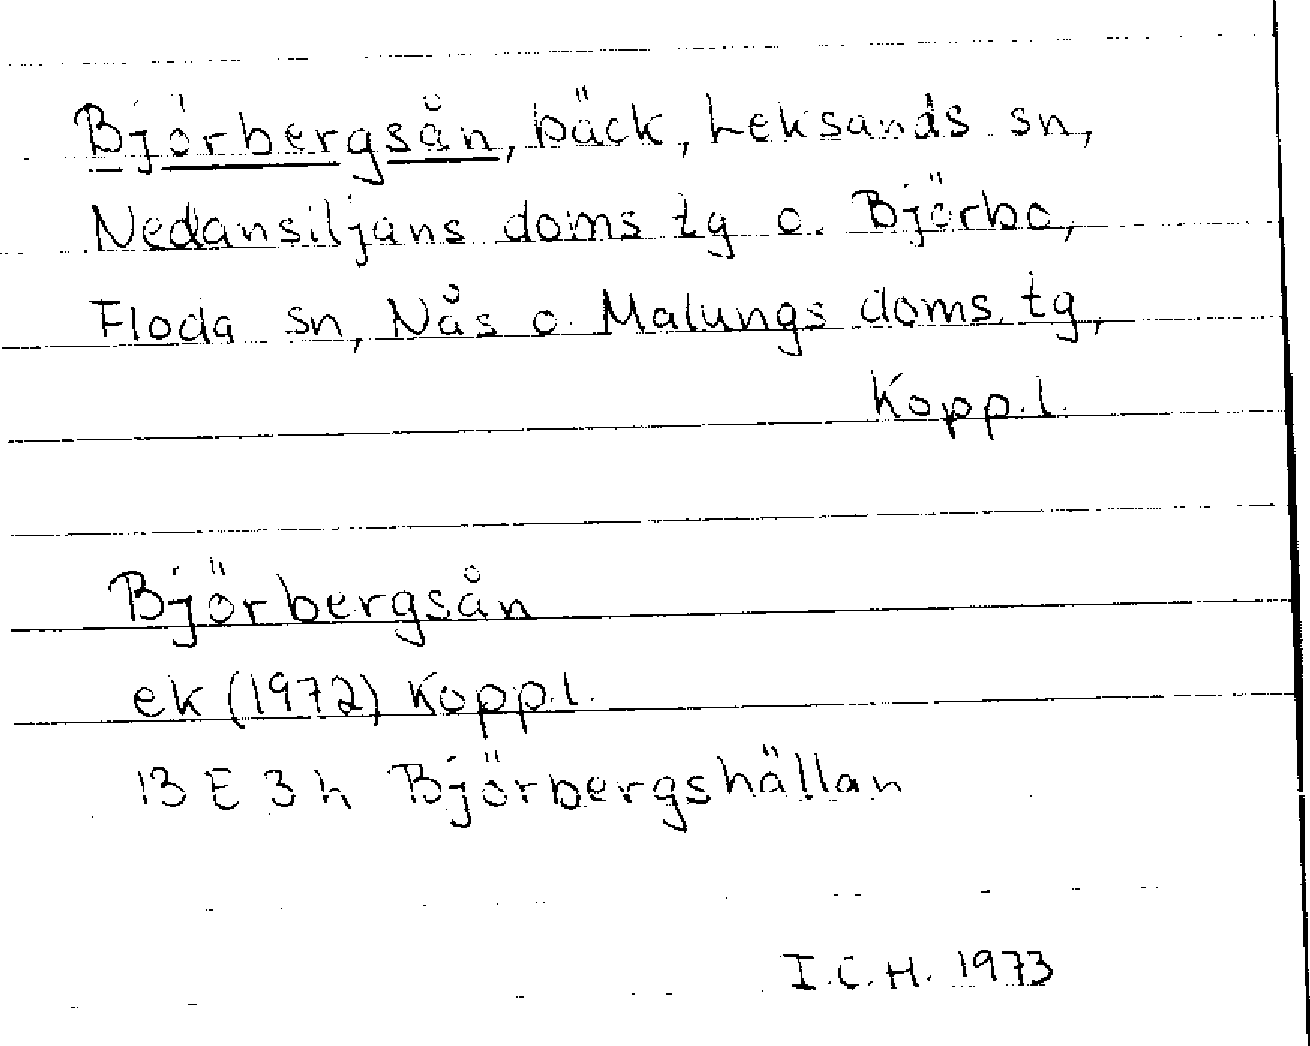 Björbergsån, bäck, Leksands sn,
Nedansiljans doms. tg o. Björbo,
Floda sn, Nås o. Malungs doms. tg,
Kopp. l.
Björbergsån
ek (1972) Kopp. l.
13 E 3 h Björbergshällan
I.C.H. 1973